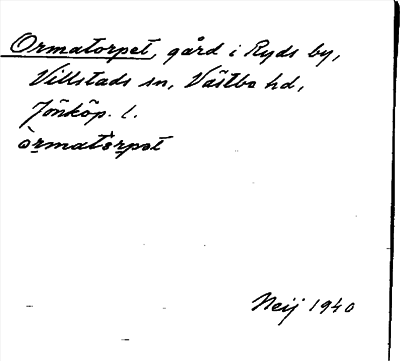 Ormatorpet, gård i Ryds by,
Villstads sn, Västbo hd,
Jönköp. l.
òrmatårpət
Neij 1940